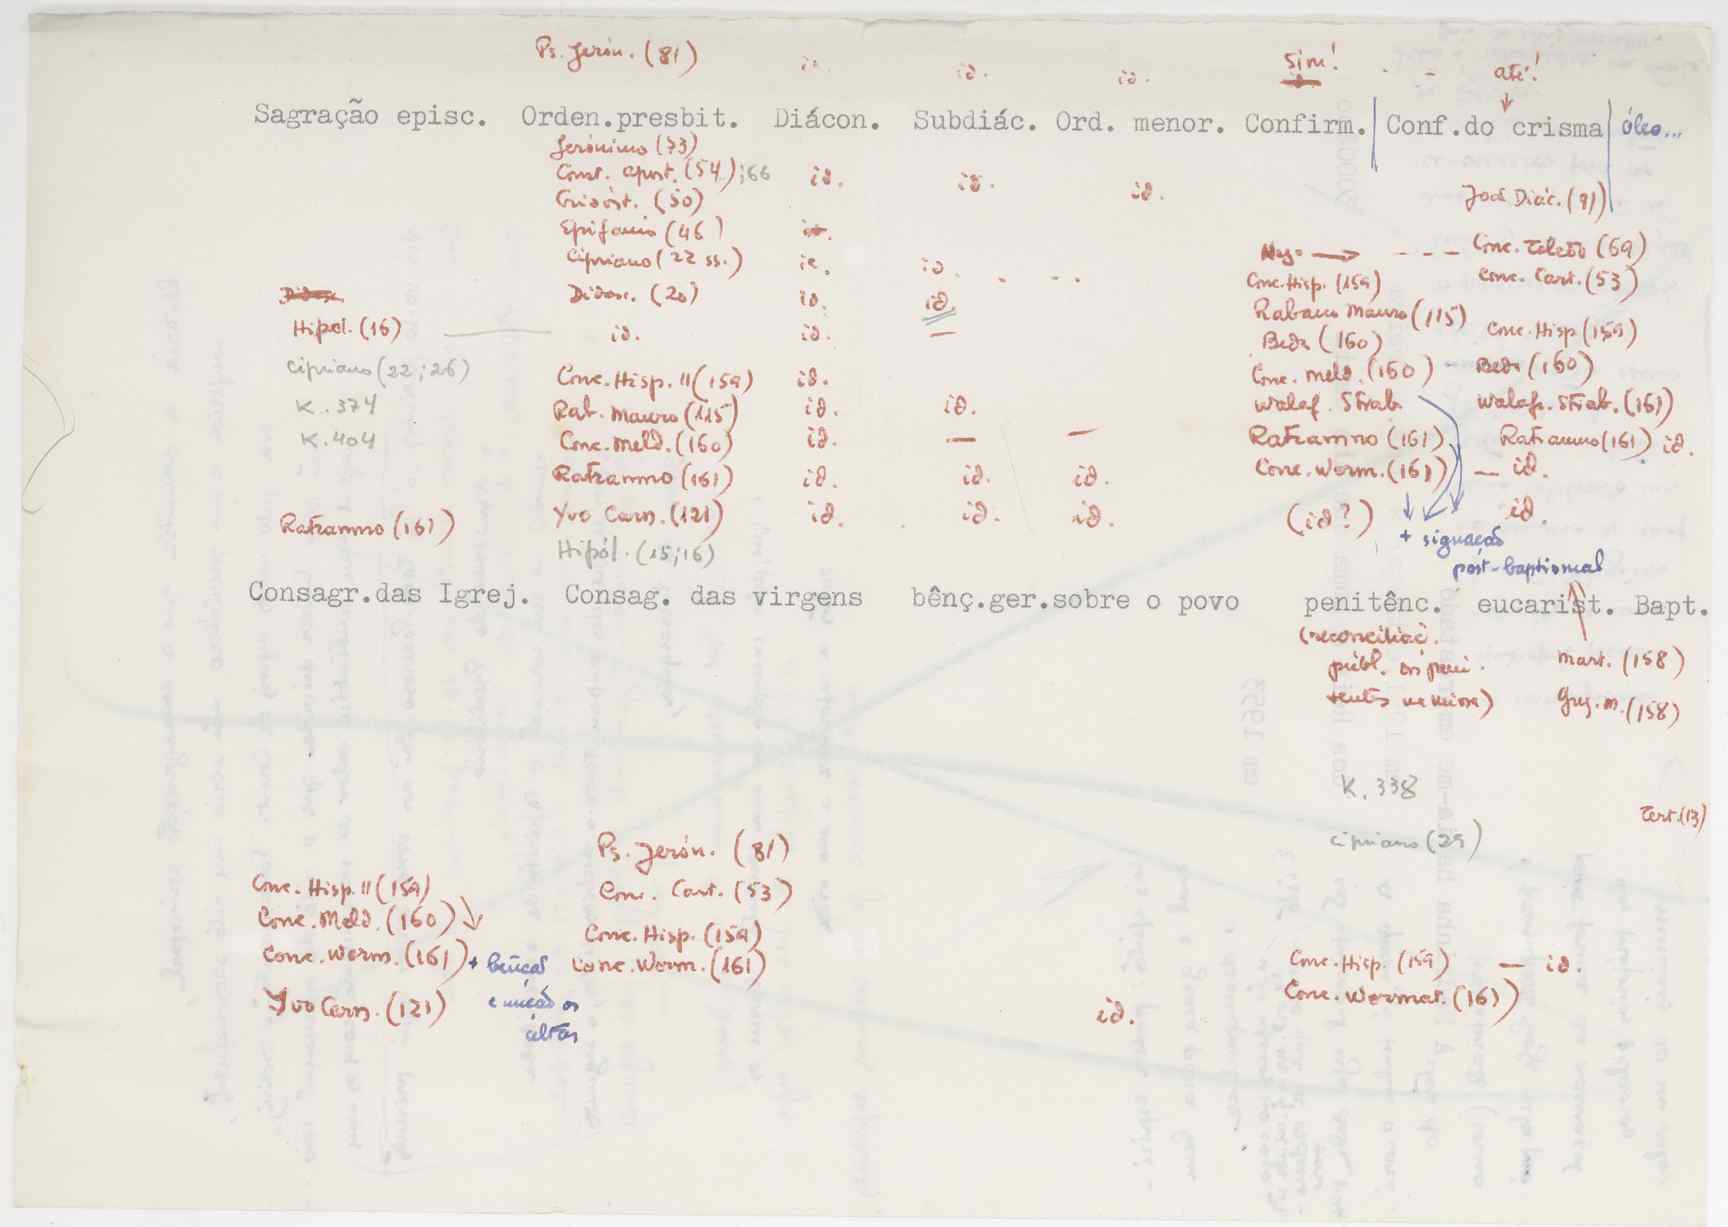 Ps. Jerón. (81) id. id. id. Sim! - - até!
Sagração episc. Orden.presbit. Diácon. Subdiác. Ord. menor. Confirm. Conf.do crisma óleo...
Jerónimo (73)
Const. Apost. (54);66 id. id. id.
Crisóst. (50) João Diác. (91)
Epifanio (46) id.
Cipriano (22 ss.) id. id. - - - Nego → - - - Conc. Toledo (69)
Conc. Hisp. (159) Conc. Cart. (53)
Didasc. Didasc. (20) id. id. Rabano Mauro (115)
Hipol. (16) id. id. — Beda (160) Conc. Hisp (159)
Cipriano (22;26) Conc. Hisp. II (159) id. Conc. Meld. (160) - Beda (160)
K. 374 Rab. Mauro (115) id. id. Walaf. Strab. Walaf. Strab. (161)
K. 404 Conc. Meld. (160) id. — — Ratramno (161) Ratramno (161) id.
Ratramno (161) id. id. id. Conc. Worm. (161) — id.
Ratramno (161) Yvo Carn. (121) id. id. id. (id?) id.
Hipól. (15;16) + signação
post-baptismal
Consagr.das Igrej. Consag. das virgens bênç.ger.sobre o povo penitênc. eucarist. Bapt.
(reconciliaç.
públ. dos peni- Mart. (158)
tentes na missa) Greg. M. (158)
K. 338
Tert. (13)
Cipriano (29)
Ps. Jerón. (81)
Conc. Hisp. II (159) Conc. Cart. (53)
Conc. Meld. (160)
Conc. Hisp. (159)
Conc. Worm. (161) + bênção Conc. Worm. (161) Conc. Hisp. (159) — id.
Yvo Carn. (121) e unção os Conc. Wormat. (161)
altar id.